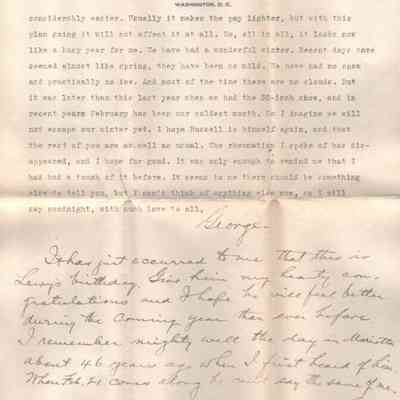 WASHINGTON, D. C.
considerably easier. Usually it makes the pay lighter, but with this
plan going it will not affect it at all. So, all in all, it looks now
like a busy year for me. We have had a wonderful winter. Recent days have
seemed almost like spring, they have been so mild. We have had no snow
and practically no ice. And most of the time there are no clouds. But
it was later than this last year when we had the 30-inch snow, and in
recent years February has been our coldest month. So I imagine we will
not escape our winter yet. I hope Russell is himself again, and that
the rest of you are as well as usual. The rheumatism I spoke of has dis-
appeared, and I hope for good. It was only enough to remind me that I
had had a touch of it before. It seems to me there should be something
else to tell you, but I can't think of anything else now, so I will
say goodnight, with much love to all,
George.
It has just occurred to me that this is
Lewy's birthday. Give him my hearty con-
gratulations and I hope he will feel better
during the coming year than ever before.
I remember mighty well the day in Marietta
about 46 years ago when I first heard of him.
When Feb. 21 comes along he can't say the same of me.